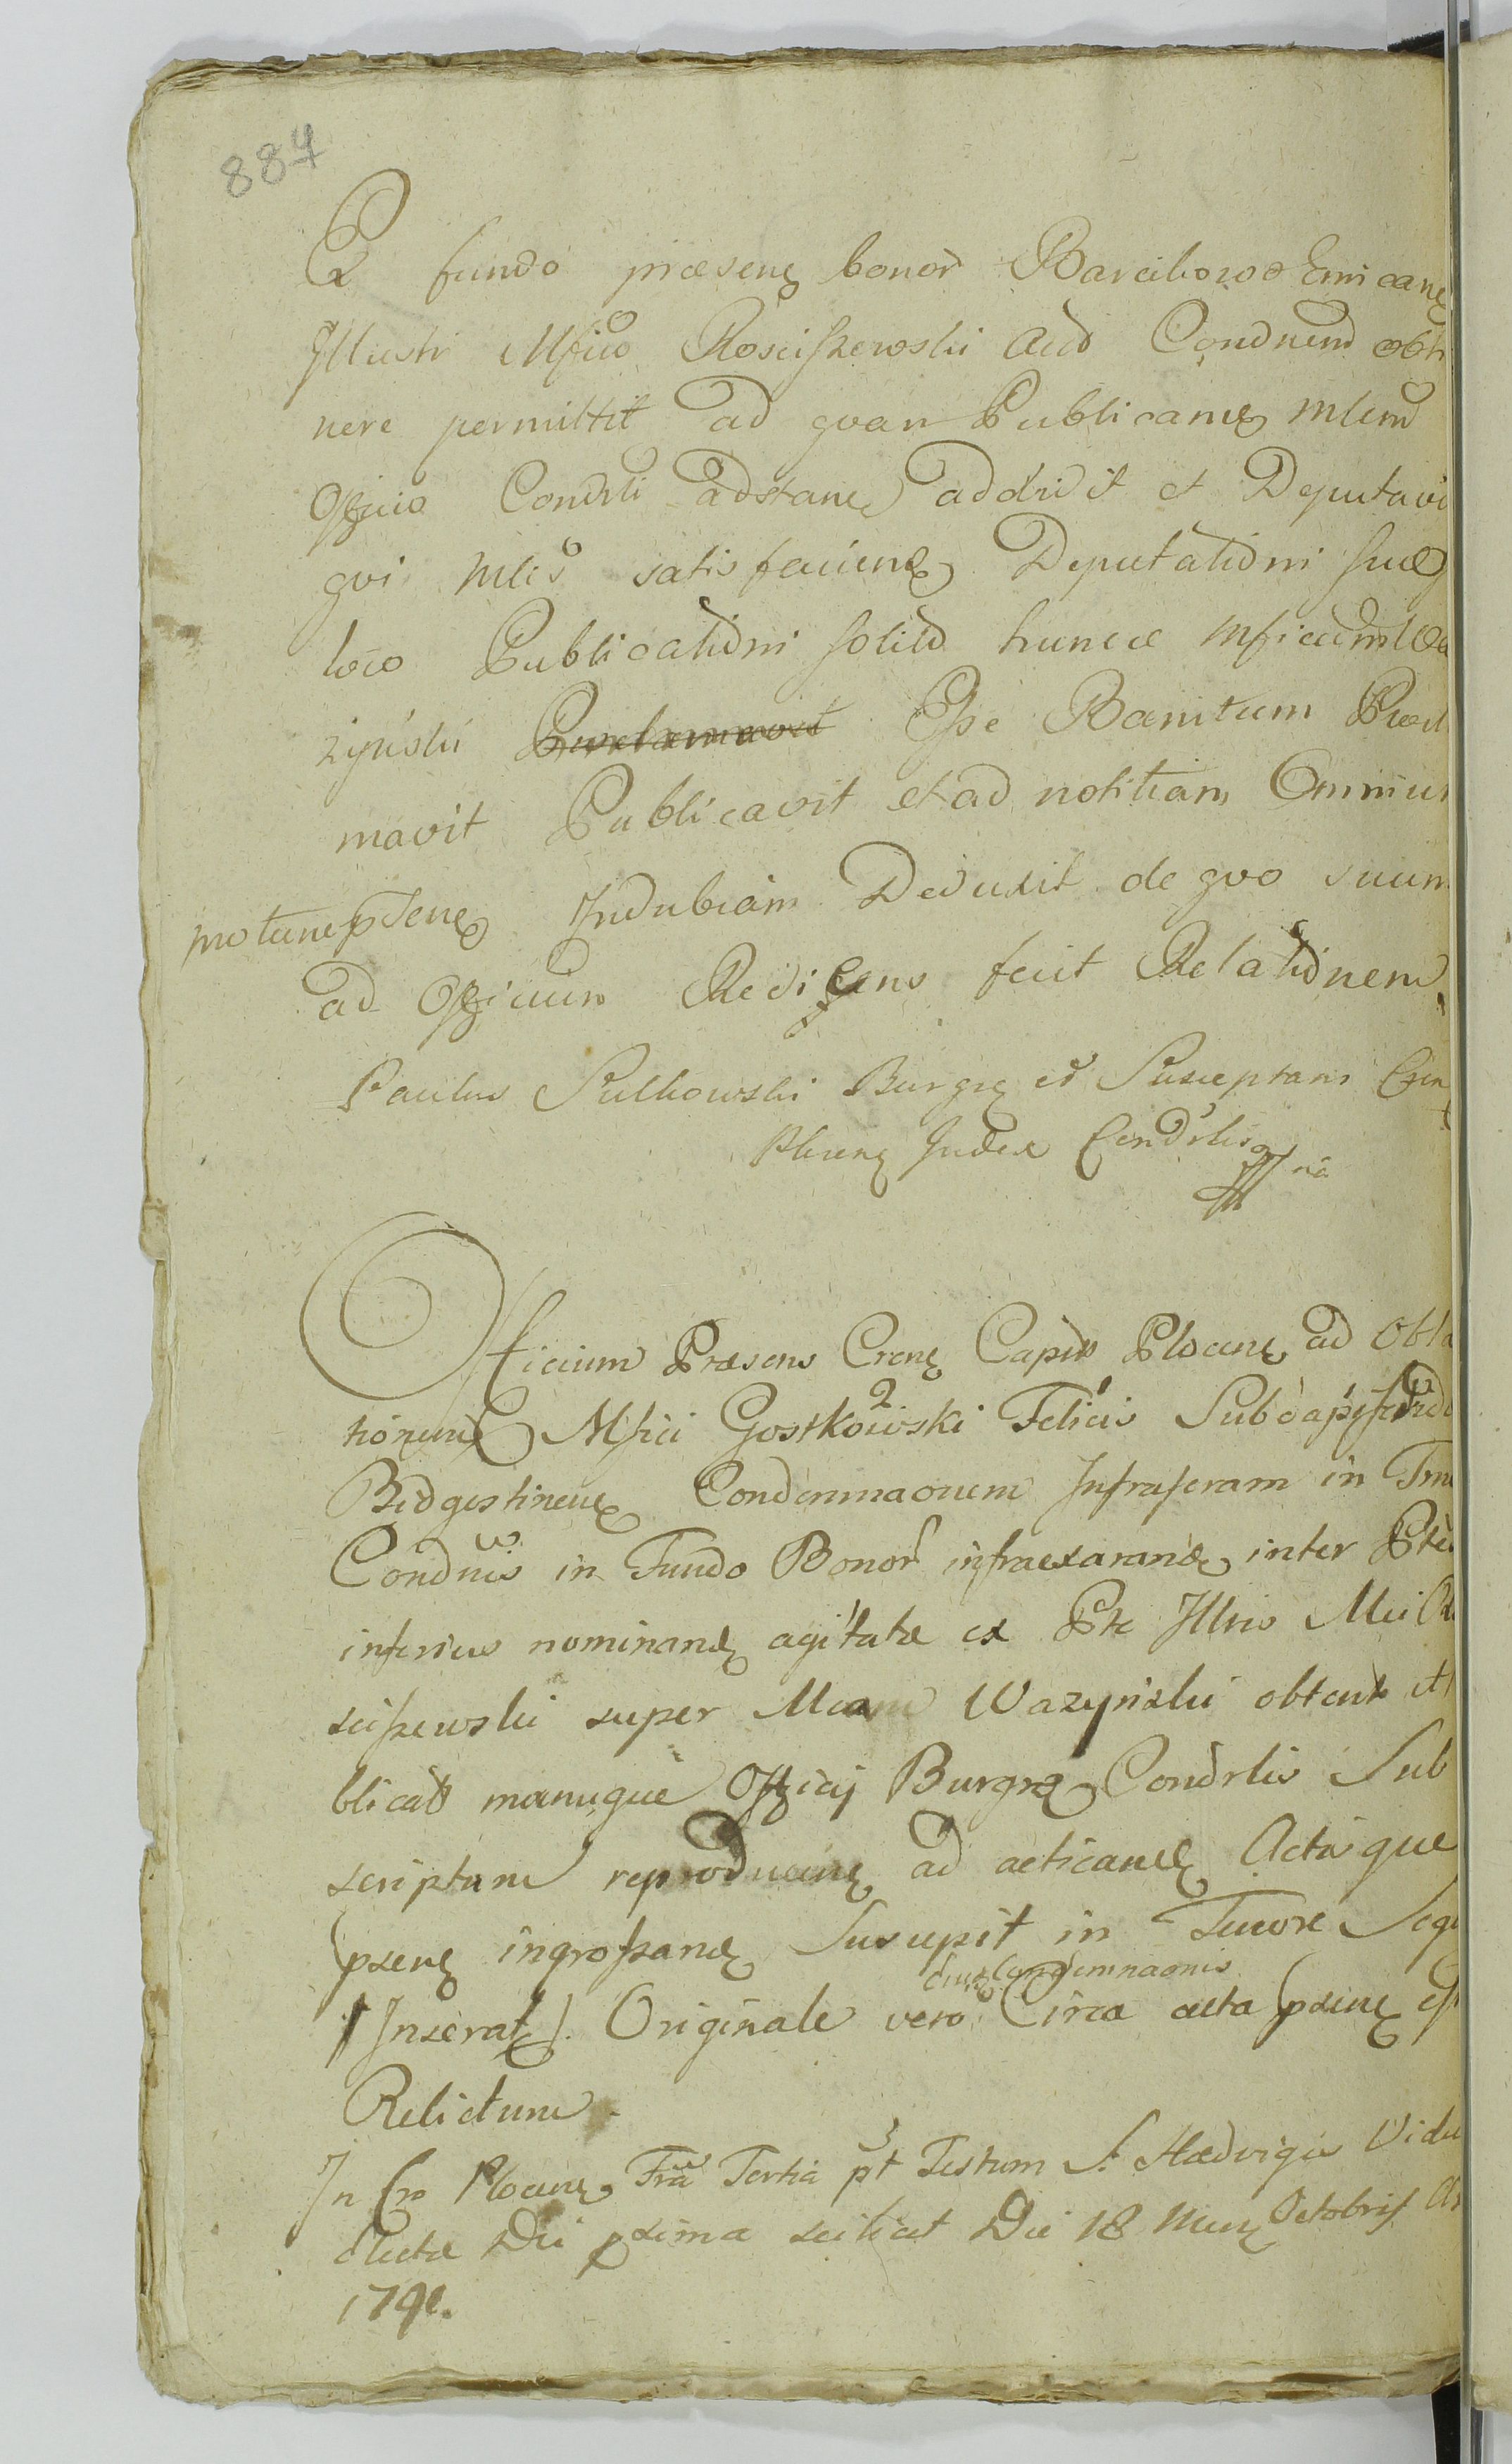 884
Ex fundo præsenę bonor Barcikowo Emicanę
Illustr Mfico Rosciszewski Aud Condnend obti
nere permittit ad quam Publicanę Mlem
Offcio Condrli adstanę addidit et Deputavi
qvi Mlis satisfacienę Deputationi suæ
loco Publicationi solito hunce Mficum Wa
zyński Proclammavit Esse Banitum Procla
mavit Publicavit et ad notitiam Omniu
protunc psenę Indubiam Deduxit de qvo suum
ad Officium Redigens fecit Relationem
Paulus Sulkowski Burgrę et Susceptans Cren
Plocenę Judex Condrlis ma
Officium Præsens Crenę Capitt Plocenę ad Obla
tionem Mfici Gostkowski Felicis
Bidgostinenę Condemnaonem Infrascram in Tmi
Condnis in Fundo Bonor infraexarandę inter Ptes
inferius nominandę agitatæ ex Pte Illris Mci Ro
sciszewski super Mcum Wazynski obtent et
blicatt manuque Officij Burgrę Condrlis Sub
scriptam reproducenę ad acticandę Actisque
psenę ingrossandę Suscepit in Tenore Seqv
/Inseratę/. Originale vero Circa acta psenę est
ejus Condemnaonis
Relictum.
In Cro Plocenę Fria Tertia pt Festum S. Hædvigis Vidu
electæ Dei pxima scilicet Die 18 Menę Octobris An
1791.